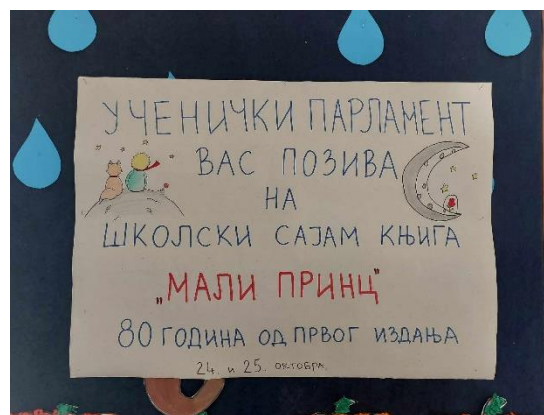 УЧЕНИЧКИ ПАРЛАМЕНТ
ВАС ПОЗИВА
НА
ШКОЛСКИ САЈАМ КЊИГА
„МАЛИ ПРИНЦ"
80 ГОДИНА ОД ПРВОГ ИЗДАЊА
24. и 25. ОКТОБРА